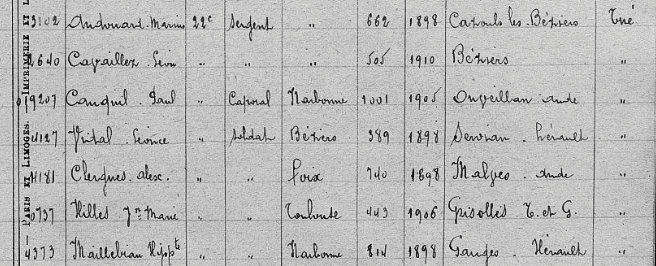 3102 Andouard Marius 22e Sergent " 662 1898 Cazouls les Béziers Tué
2640 Cavaillez Léon " " " 505 1910 Béziers "
19207 Cauquil Paul " Caporal Narbonne 1001 1905 Ouveillan Aude "
4127 Vidal " Soldat Béziers 389 1898 Servian Hérault "
4181 Clergues Alex. " " Foix 740 1898 Aude "
0737 Hilles Jn Marie " " Toulouse 443 1906 Grisolles T. et G. "
4373 Maillebiau Hippte " " Narbonne 814 1898 Ganges Hérault "
PARIS ET LIMOGES. — IMPRIMERIE ET L